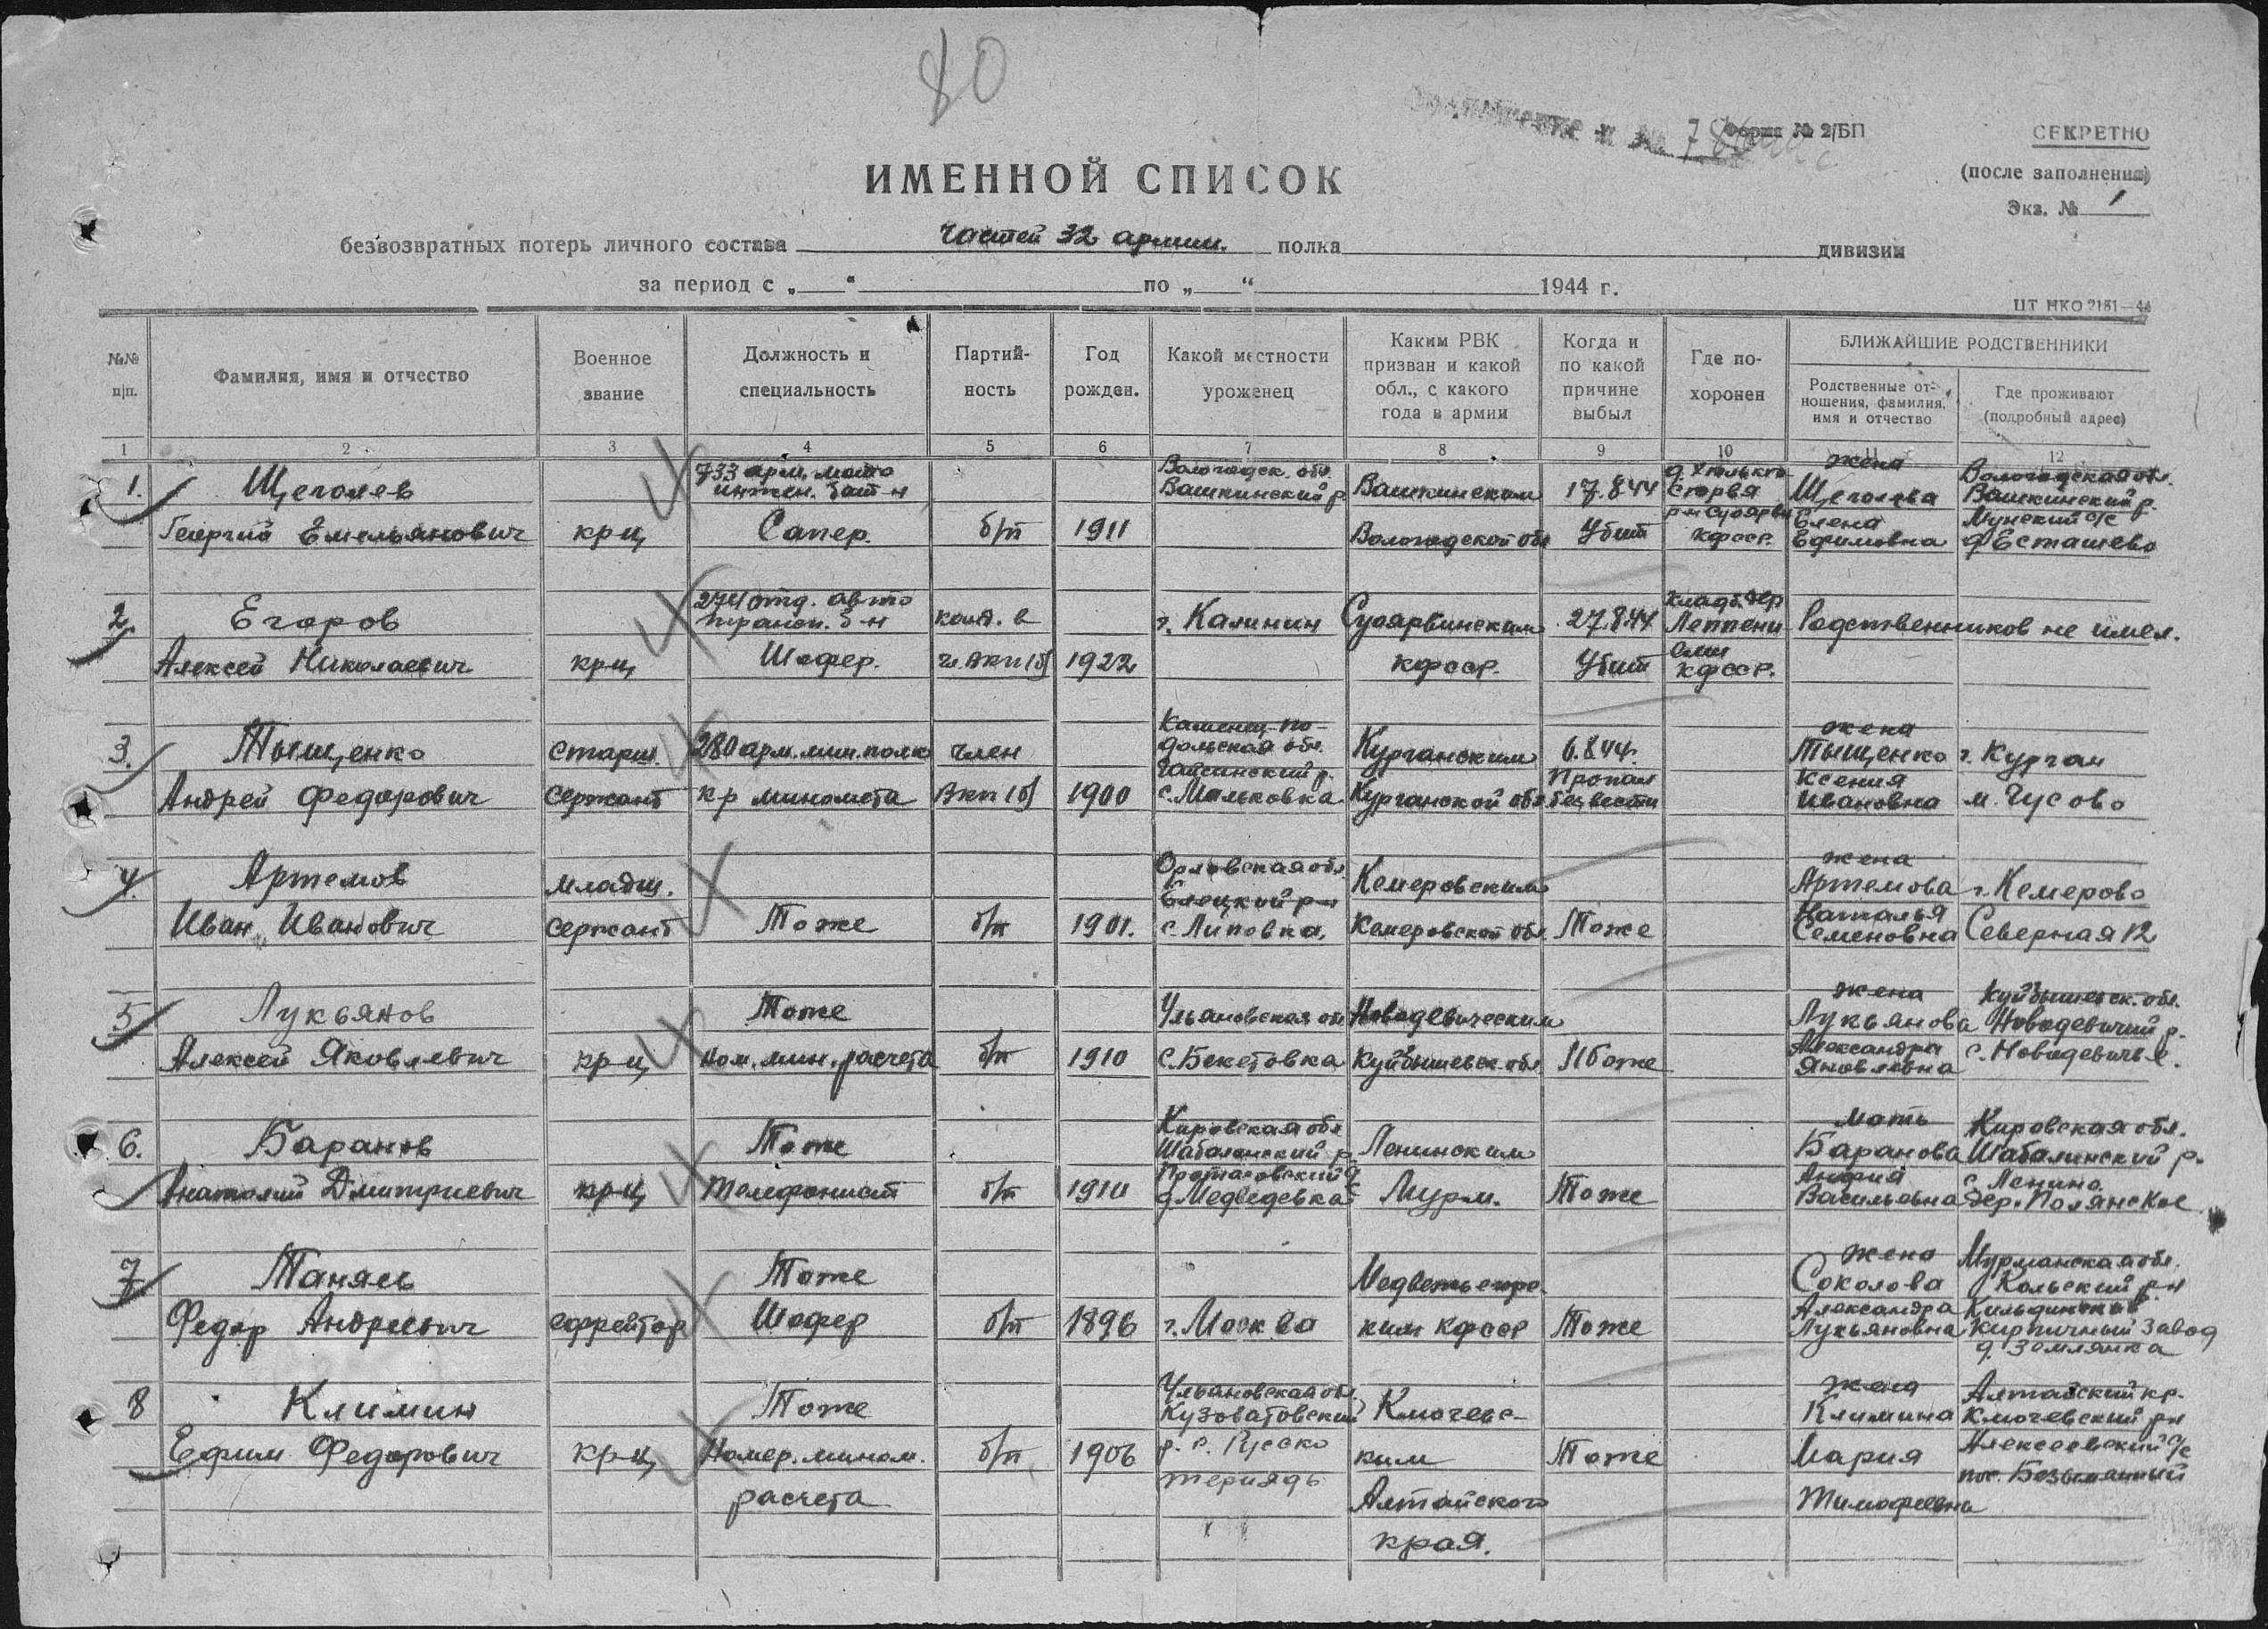 80
к № 78
Форма № 2/БП
СЕКРЕТНО
(после заполнения)
Экз. № 1
ИМЕННОЙ СПИСОК
безвозвратных потерь личного состава частей 32 армии. полка дивизии
за период с „ “ по „ “ 1944 г.
ЦТ НКО 2181—44
№№ п|п.
Фамилия, имя и отчество
Военное звание
Должность и специальность
Партийность
Год рожден.
Какой местности уроженец
Каким РВК призван и какой обл., с какого года в армии
Когда и по какой причине выбыл
Где похоронен
БЛИЖАЙШИЕ РОДСТВЕННИКИ
Родственные отношения, фамилия, имя и отчество
Где проживают (подробный адрес)
1 2 3 4 5 6 7 8 9 10 11 12
1. Щеголев
Георгий Емельянович
кр-ц
733 арм. мото
инжен. бат-н
Сапер.
б/п
1911
Вологодск. обл.
Вашкинский р
Вашкинским
Вологодской обл
17.8.44
Убит
р-н Суоярви
КФССР.
жена
Щеголева
Елена
Ефимовна
Вологодская обл.
Вашкинский р.
Мунский с/с
д Есташево
2. Егоров
Алексей Николаевич
кр-ц
274 отд. авто
трансп. б-н
Шофер.
канд. в
чл. ВКП(б)
1922
г. Калинин
Суоярвинским
КФССР.
27.8.44
Убит
Кладб. дер
Леппени
КФССР.
Родственников не имел.
3. Тыщенко
Андрей Федорович
старш.
сержант
280 арм. мин. полк
к-р миномета
член
ВКП(б)
1900
Каменец-По-
дольская обл.
Гайсинский р.
с. Мальковка
Курганским
Курганской обл
6.8.44.
Пропал
без вести
жена
Тыщенко
Ксения
Ивановна
г. Курган
м. Чусово
4. Артемов
Иван Иванович
младш.
сержант
Тоже
б/п
1901.
Орловская обл.
Елецкий р-н
с. Липовка,
Кемеровским
Кемеровской обл
Тоже
жена
Артемова
Наталья
Семеновна
г. Кемерово
Северная 12
5 Лукьянов
Алексей Яковлевич
кр-ц
Тоже
Ном. мин. расчета
б/п
1910
Ульяновская обл
с. Бекетовка
Новодевическим
Куйбышевск. обл
Тоже
жена
Лукьянова
Александра
Яковлевна
Куйбышевск. обл.
Новодевичий р.
с. Новодевичье.
6. Баранов
Анатолий Дмитриевич
кр-ц
Тоже
Телефонист
б/п
1910
Кировская обл
Шабалинский р.
Протасовский
д Медведевка
Ленинским
Мурм.
Тоже
мать
Баранова
Анфия
Васильевна
Кировская обл.
Шабалинский р.
с Ленино
дер. Полянское
7 Таняев
Федор Андреевич
ефрейтор
Тоже
Шофер
б/п
1896
г. Москва
Медвежьегорс
ким КФССР
Тоже
жена
Соколова
Александра
Лукьяновна
Мурманская обл.
Кольский р-н
Кильдинский
кирпичный завод
д. Землянка
8 Климин
Ефим Федорович
кр-ц
Тоже
Номер. мином.
расчета
б/п
1906
Ульяновская обл.
Кузоватовский
р. с. Русско
Ключевс-
ким
Алтайского
края.
Тоже
жена
Климина
Мария
Тимофеевна
Алтайский кр.
Ключевский р-н
Алексеевский с/с
пос. Безымянный